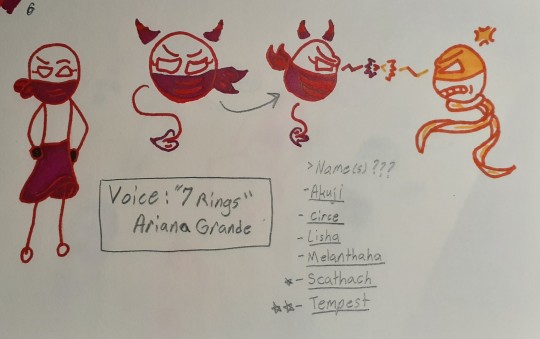 6
Voice: "7 Rings"
Ariana Grande
> Name(s) ???
- Akuji
- Circe
- Lisha
- Melanthaha
☆- Scathach
☆☆- Tempest